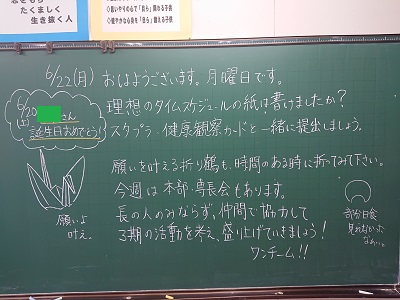 たくましく
生き抜く人
6/22(月) おはようございます。月曜日です。
6/20(土)
さん
誕生日おめでとう!
理想のタイムスケジュールの紙は書けましたか?
スタプラ・健康観察カードと一緒に提出しましょう。
願いを叶える折り鶴も、時間のある時に折ってみて下さい。
今週は本部・専長会もあります。
長の人のみならず、仲間で協力して
3期の活動を考え、盛り上げていきましょう!
ワンチーム!!
願いよ
叶え。
部分日食
見れるかな